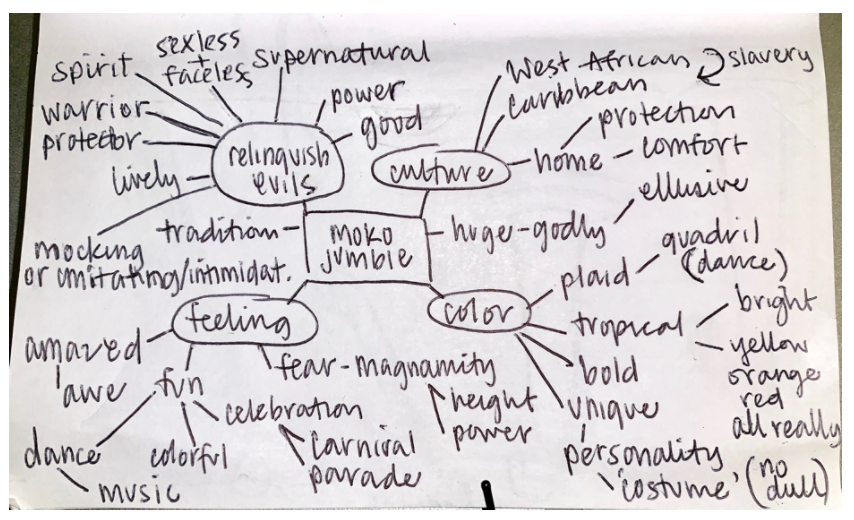 sexless
+
faceless
supernatural
spirit
warrior
protector
lively
mocking
or imitating/intimidat.
power
good
relinquish
evils
West African
slavery
Caribbean
culture
home
protection
comfort
tradition
MOKO
JUMBIE
huge-godly
ellusive
feeling
amazed
awe
fun
dance
music
colorful
celebration
carnival
parade
fear-magnamity
height
power
color
plaid
quadril
(dance)
tropical
bright
yellow
orange
red
all really
bold
unique
personality
'costume' (no
dull)